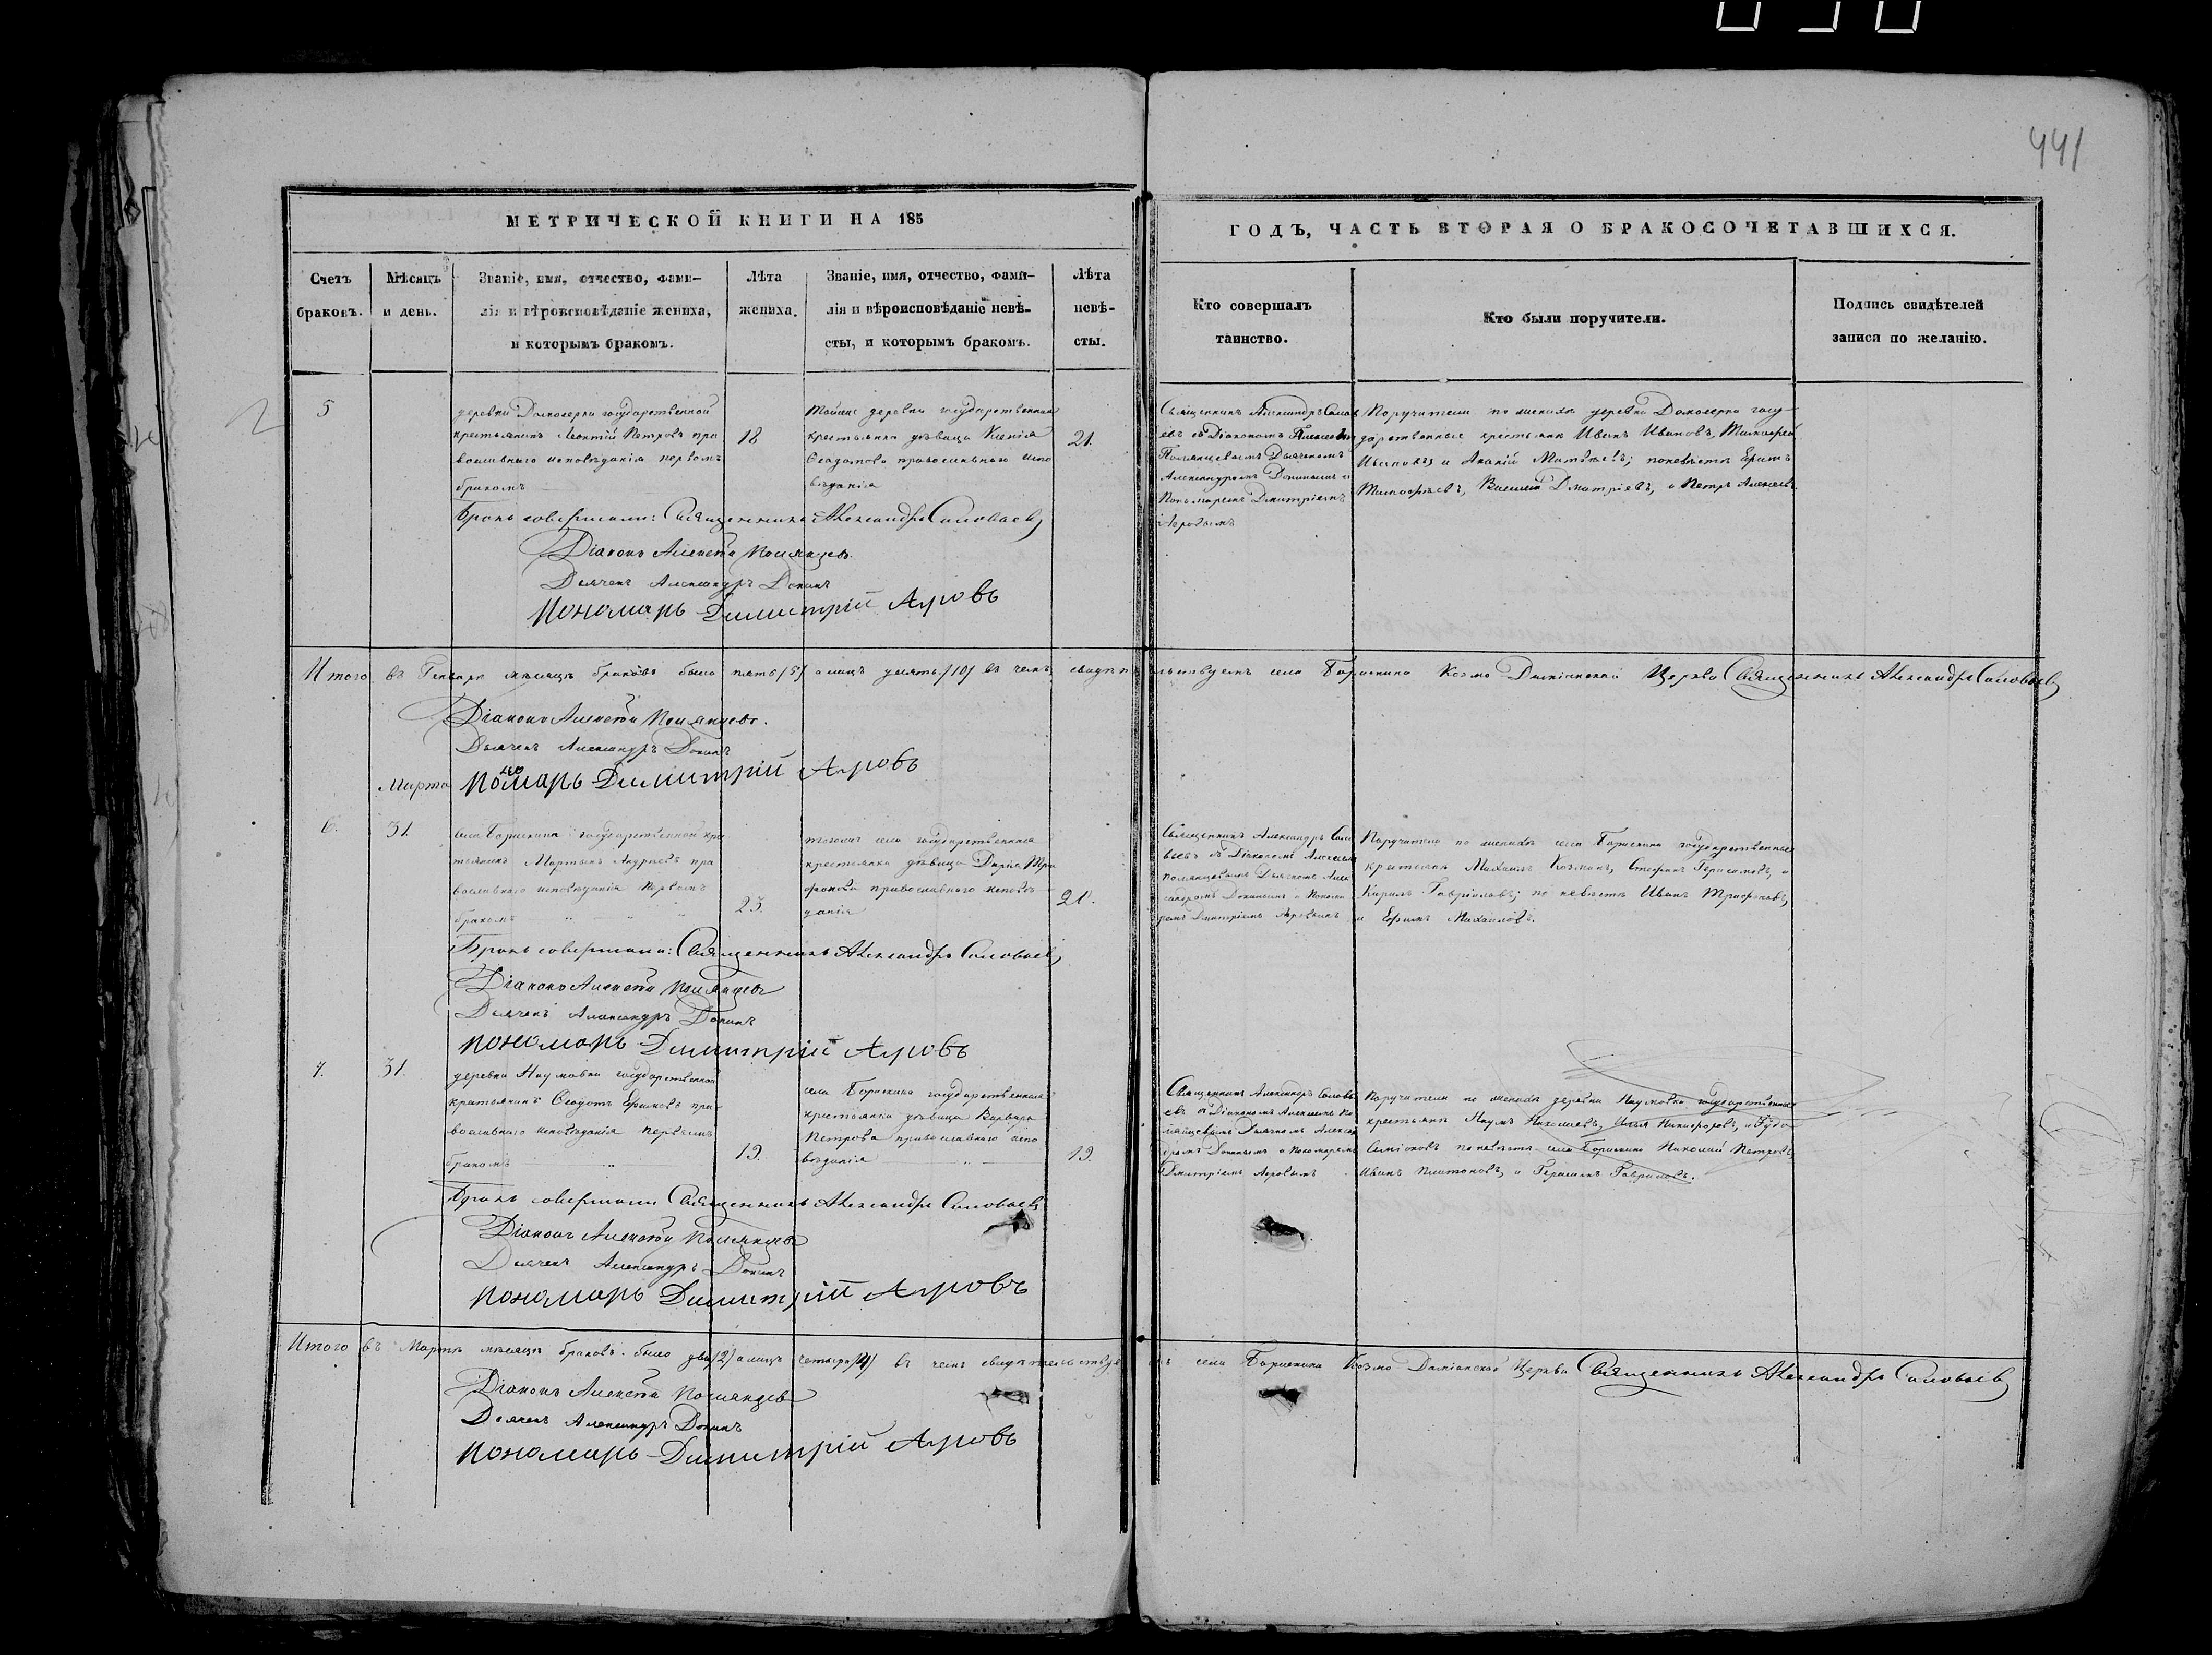 441
МЕТРИЧЕСКОЙ КНИГИ НА 185
ГОДЪ, ЧАСТЬ ВТОРАЯ О БРАКОСОЧЕТАВШИХСЯ.
Счетъ
браковъ.
Мѣсяцъ
и день.
Званіе, имя, отчество, фами-
лія и вѣроисповѣданіе жениха,
и которымъ бракомъ.
Лѣта
жениха.
Званіе, имя, отчество, фами-
лія и вѣроисповѣданіе невѣ-
сты, и которымъ бракомъ.
Лѣта
невѣ-
сты.
Кто совершалъ
таинство.
Кто были поручители.
Подпись свидѣтелей
записи по желанію.
5
деревни государственной
крестьянинъ Леонтій Петровъ пра
вославнаго исповѣданія первымъ
бракомъ
18
тойже деревни государственная
крестьянка дѣвица Ксенія
Ѳедотова православнаго испо
вѣданія
21.
Священникъ Александръ Солов
евъ съ Діакономъ Алексѣемъ
Дьячкомъ
Александромъ и
Пономаремъ Дмитріемъ
Яровымъ
Поручители по женихѣ деревни госу-
дарственные крестьяне Иванъ Ивановъ, Тимофей
Ивановъ, и Матвѣевъ; по невѣстѣ Ефимъ
Тимофѣевъ, Василій Дмитріевъ, и Петръ Алексѣевъ
Бракъ совершали: Священникъ Александръ Соловьевъ
Діаконъ Алексѣй
Дьячекъ Александръ
Пономарь Димитрій Яровъ
Итого въ Генварѣ мѣсяцѣ браковъ было пять /5/ а лицъ десять /10/ въ чемъ свидѣтельствуемъ села Борискина Козмо Даміанской Церкви Священникъ Александръ Соловьевъ
Діаконъ Алексѣй
Дьячекъ Александръ
Пономарь Димитрій Яровъ
Марта
6.
31.
села Борискина государственной кре
стьянинъ Мартынъ Андреевъ пра
вославнаго исповѣданія первымъ
бракомъ
23.
тогоже села государственная
крестьянка дѣвица Дарія Три
фонова православнаго исповѣ
данія
21.
Священникъ Александръ Соло
вьевъ съ Діакономъ Алексѣемъ
Дьячкомъ Алек
сандромъ и Понома
ремъ Дмитріемъ Яровымъ
Поручители по женихѣ села Борискина государственные
крестьяне Михаилъ Козминъ, Стефанъ Герасимовъ, и
Кирилъ Гавриловъ; по невѣстѣ Иванъ Трифоновъ,
и Ефимъ Михайловъ.
Бракъ совершали: Священникъ Александръ Соловьевъ
Діаконъ Алексѣй
Дьячекъ Александръ
пономарь Димитрій Яровъ
7.
31.
деревни Наумовки государственной
крестьянинъ Ѳедотъ Ефимовъ пра
вославнаго исповѣданія первымъ
бракомъ
19.
села Борискина государственная
крестьянка дѣвица Варвара
Петрова православнаго испо
вѣданія
19.
Священникъ Александръ Соловь
евъ съ Діакономъ Алексѣемъ
Дьячкомъ Алексан
дромъ и Пономаремъ
Дмитріемъ Яровымъ
Поручители по женихѣ деревни Наумовки государственные
крестьяне Наумъ Николаевъ, Илья Никифоровъ, и
по невѣстѣ села Борискина Николай Петровъ
Иванъ Платоновъ, и Герасимъ Гавриловъ.
Бракъ совершали Священникъ Александръ Соловьевъ
Діаконъ Алексѣй
Дьячекъ Александръ
пономарь Димитрій Яровъ
Итого въ Мартѣ мѣсяцѣ браковъ было два /2/ а лицъ четыре /4/ въ чемъ свидѣтельствуемъ села Борискина Козмо Даміанской Церкви Священникъ Александръ Соловьевъ
Діаконъ Алексѣй
Дьячекъ Александръ
пономарь Димитрій Яровъ